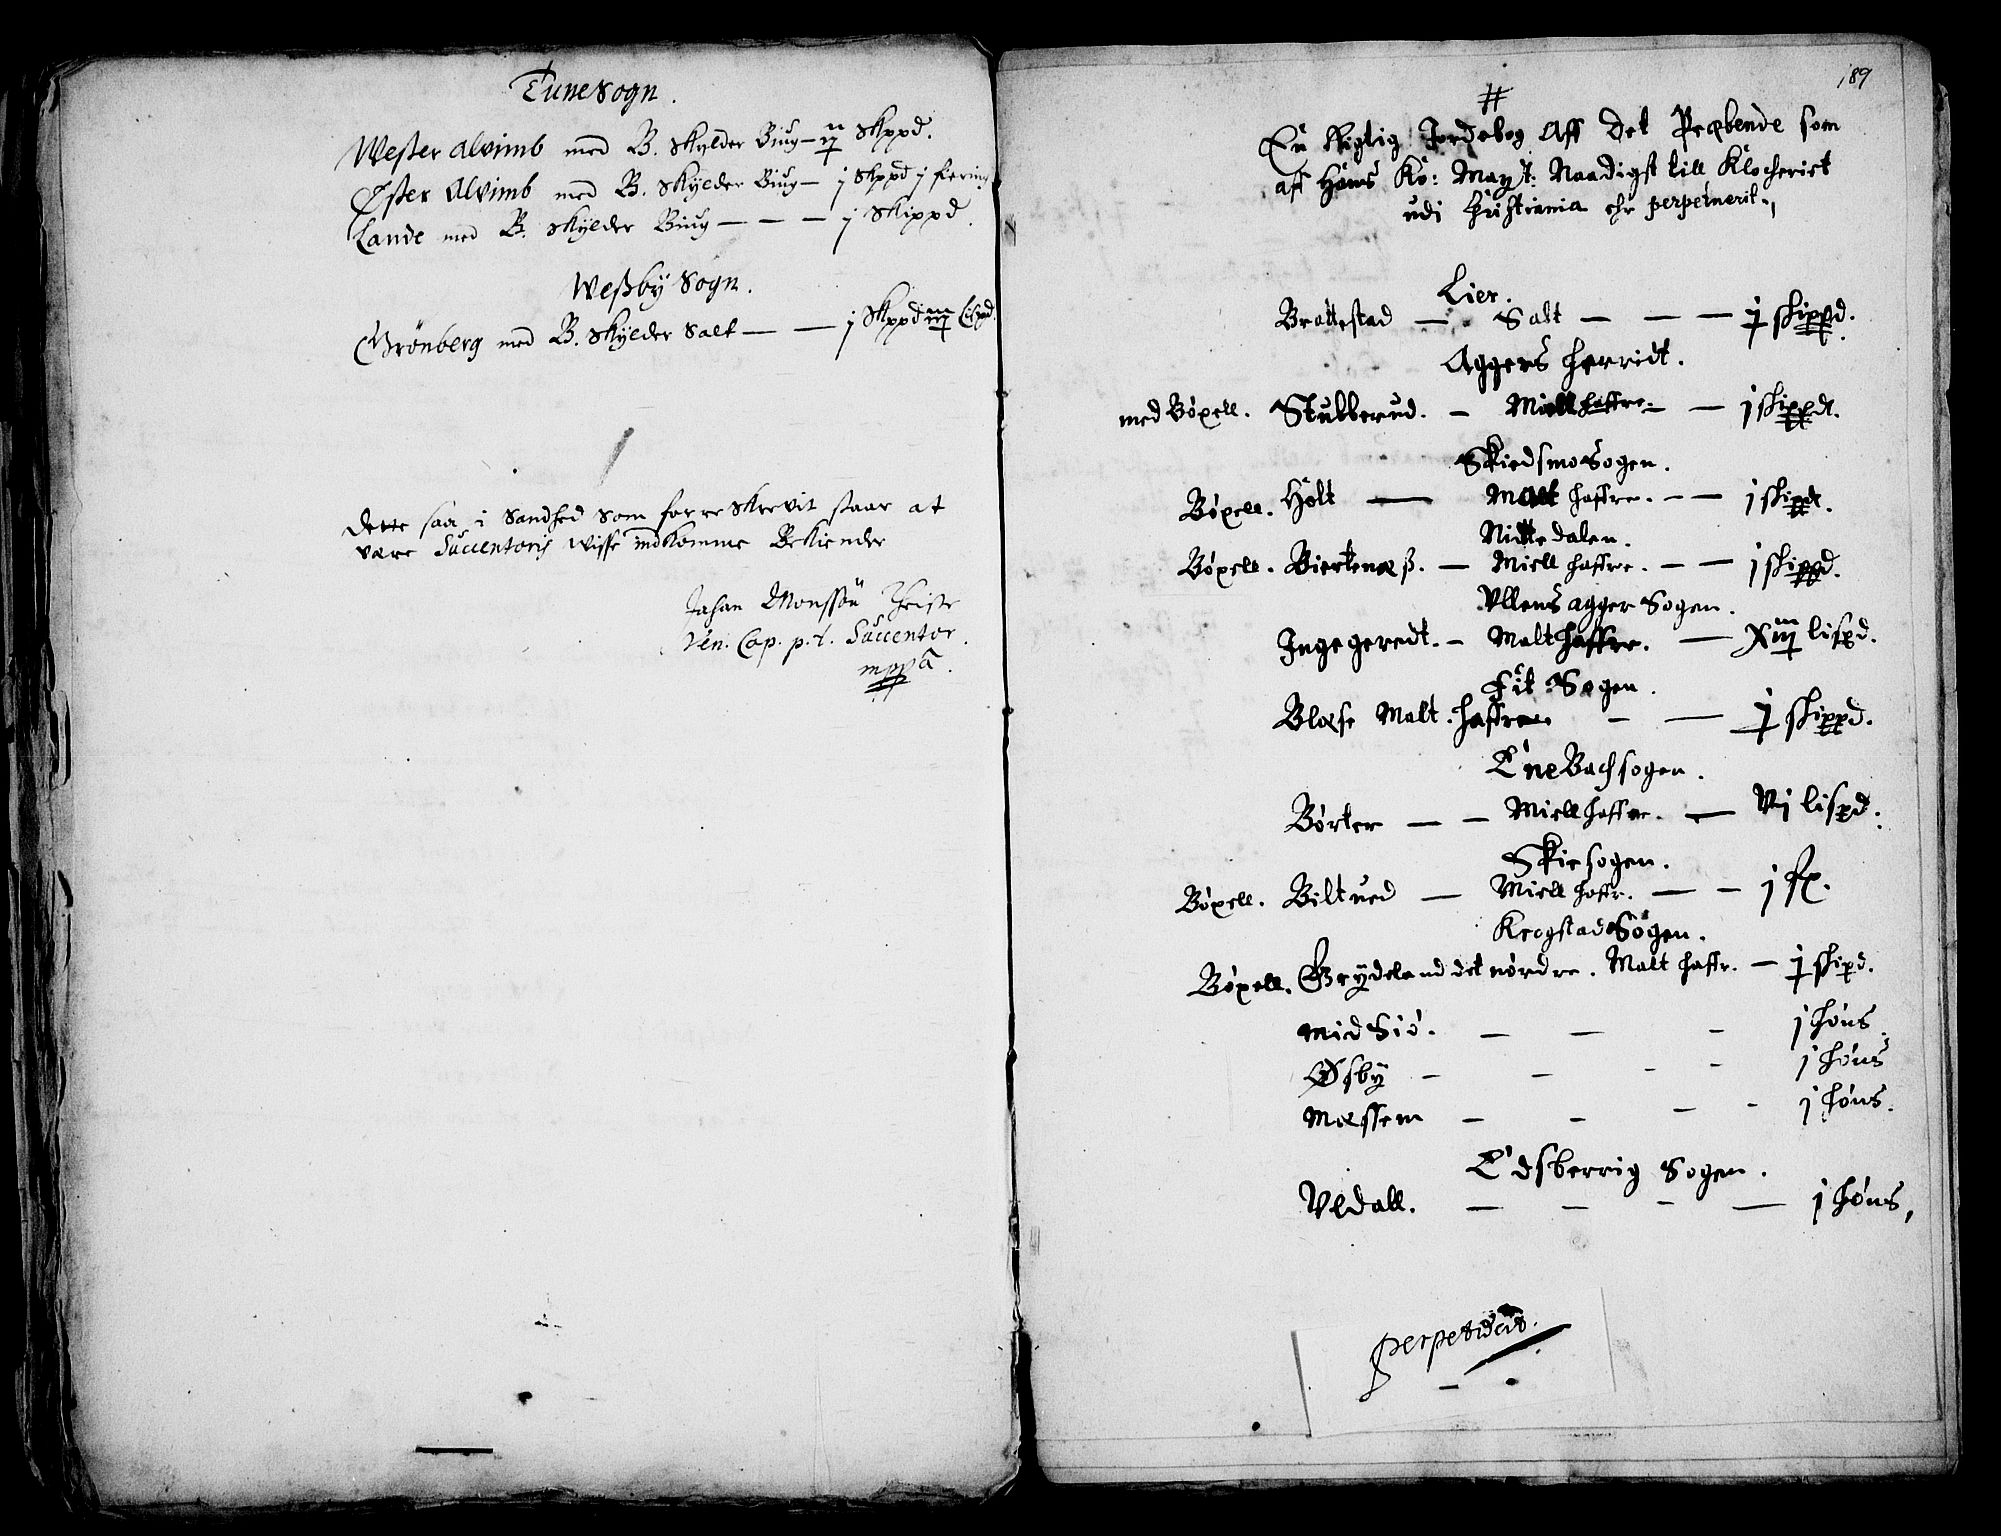 Tune Sogn.
Wester Alvimb med B. Skylder Biug — ij Skppd.
Øster Alvimb med B. Skylder Biug — j Skppd j fiering
Lande med B. Skylder Biug — — — j Skippd.
Westby Sogn.
Grönberg med B. Skylder Salt — — j Skppd iiij Lispd.
Dette saa i Sandhed som forreskrevit staar at
være Succentoris wisse indkomme Bekiender
Johan Monssön
Ven. Cap. p.t. Succentor.
mppa.
189
#
En Rigtig Jordebog Aff Det Præbende som
aff Hans Ko: May:t: Naadigst till Klocheriet
udi Christiania ehr perpetuerit.
Lier.
Brattestad — Salt — — — j skippd.
Aggers herridt.
med Böxell. Stubberud. — Miell haffre. — — j skippdt.
Skiedsmo Sogen.
Böxell. Holt — Malt haffre. — — j skipdt.
Nittedalen.
Böxell. Bierkenæß. — Miell haffre. — — j skippd.
Ullensagger Sogen.
Ingegeredt. — Malt haffre. — Xiij lispd.
Fit Sogen.
Blæse Malt haffre. — — j skippd.
Enebach sogen.
Börter — — Miell haffre. — Vj lispd.
Skie sogen.
Böxell. Biltued — Miell haffr. — — j
Krogstad Sogen.
Böxell. Grydeland det nordre. Malt haffr. — j skipd.
Mid Siö. — — — j höns.
Øsby — — — — j höns
Mæssem — — — — j höns.
Edsberrig Sogen.
Uldall. — — — — j höns,
perpetuert.